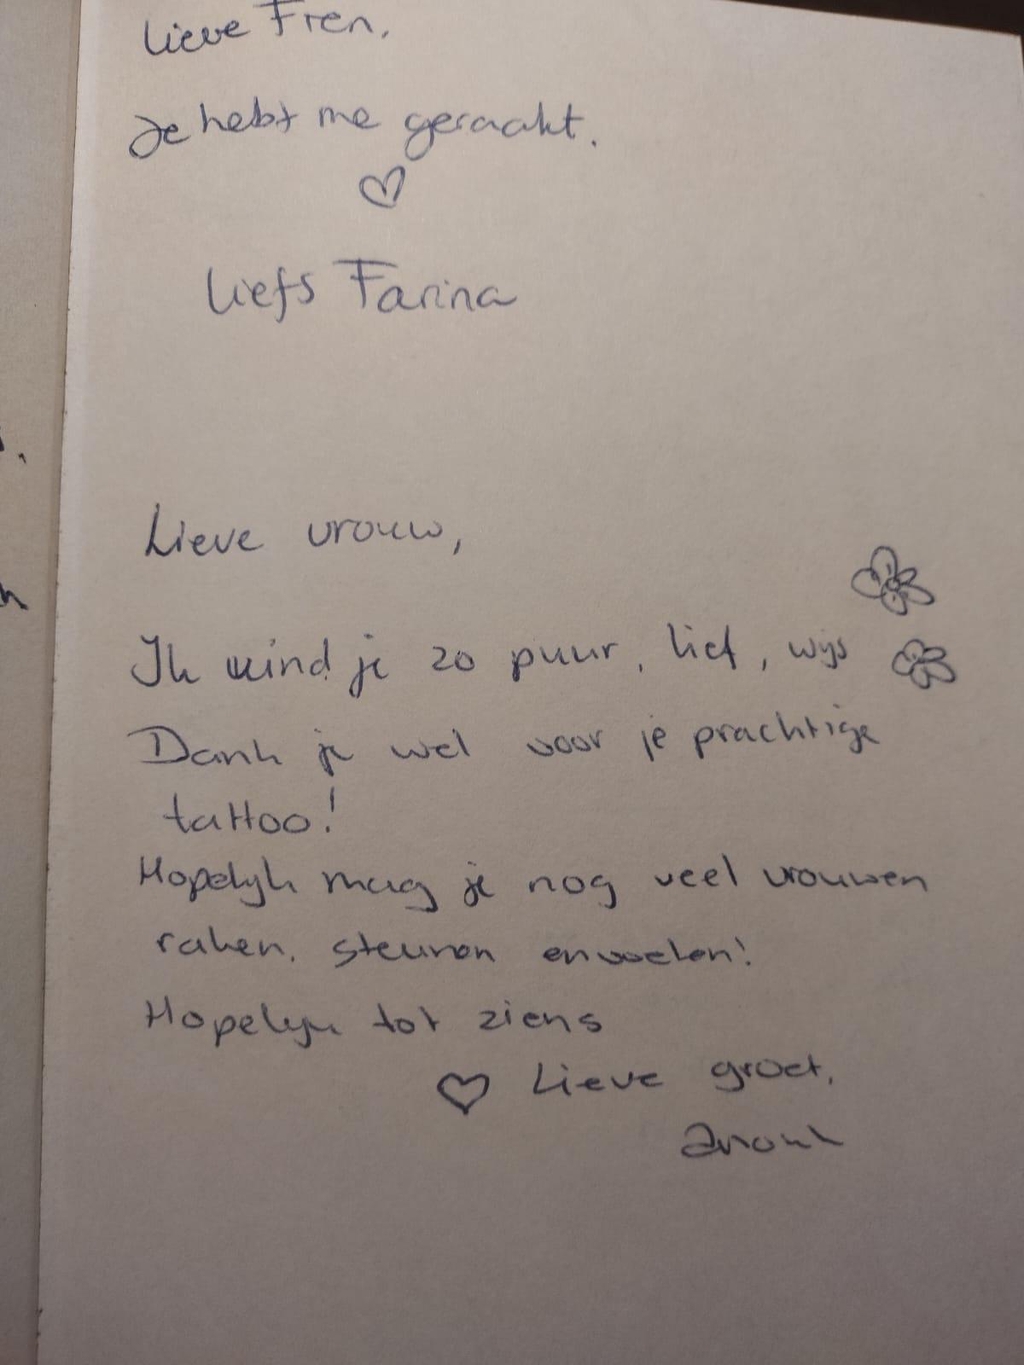 Lieve Fren,
Je hebt me geraakt.
liefs Farina
Lieve vrouw,
Ik vind je zo puur, lief, wijs
Dank je wel voor je prachtige
tattoo!
Hopelijk mag je nog veel vrouwen
raken, steunen en voelen!
Hopelijk tot ziens
Lieve groet,
Anouk